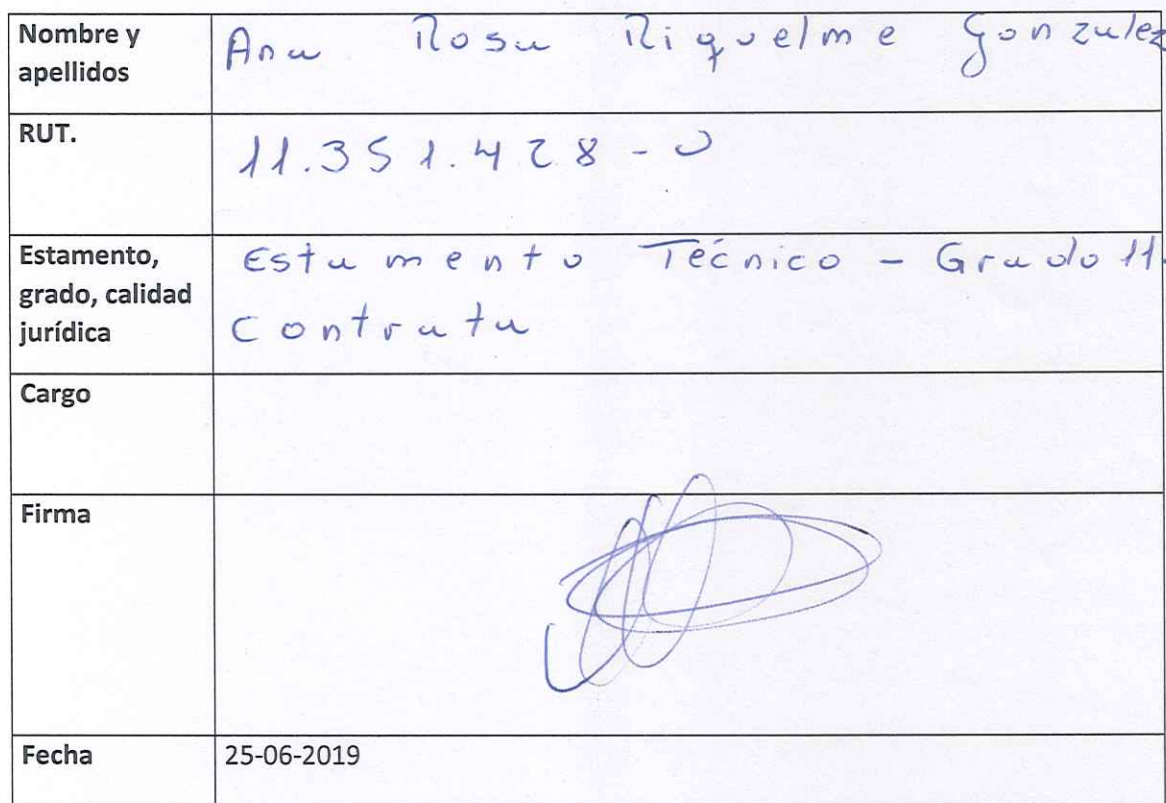 Nombre y
apellidos
Ana Rosa Riquelme Gonzalez
RUT.
11.351.428-0
Estamento,
grado, calidad
jurídica
Estamento Técnico - Grado 11.
Contrata
Cargo
Firma
Fecha
25-06-2019